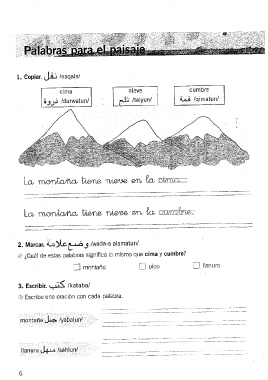 Palabras para el paisaje
1. Copiar. نقل /naqala/
cima nieve cumbre
ذروة /durwatun/ ثلج /taljun/ قمة /qimatun/
La montaña tiene nieve en la cima.
La montaña tiene nieve en la cumbre.
2. Marcar. وضع علامة /wada-a alamatun/
¿Cuál de estas palabras significa lo mismo que cima y cumbre?
montaña pico llanura
3. Escribir. كتب /kataba/
Escribe una oración con cada palabra.
montaña جبل /yabalun/
llanura سهل /sahlun/
6